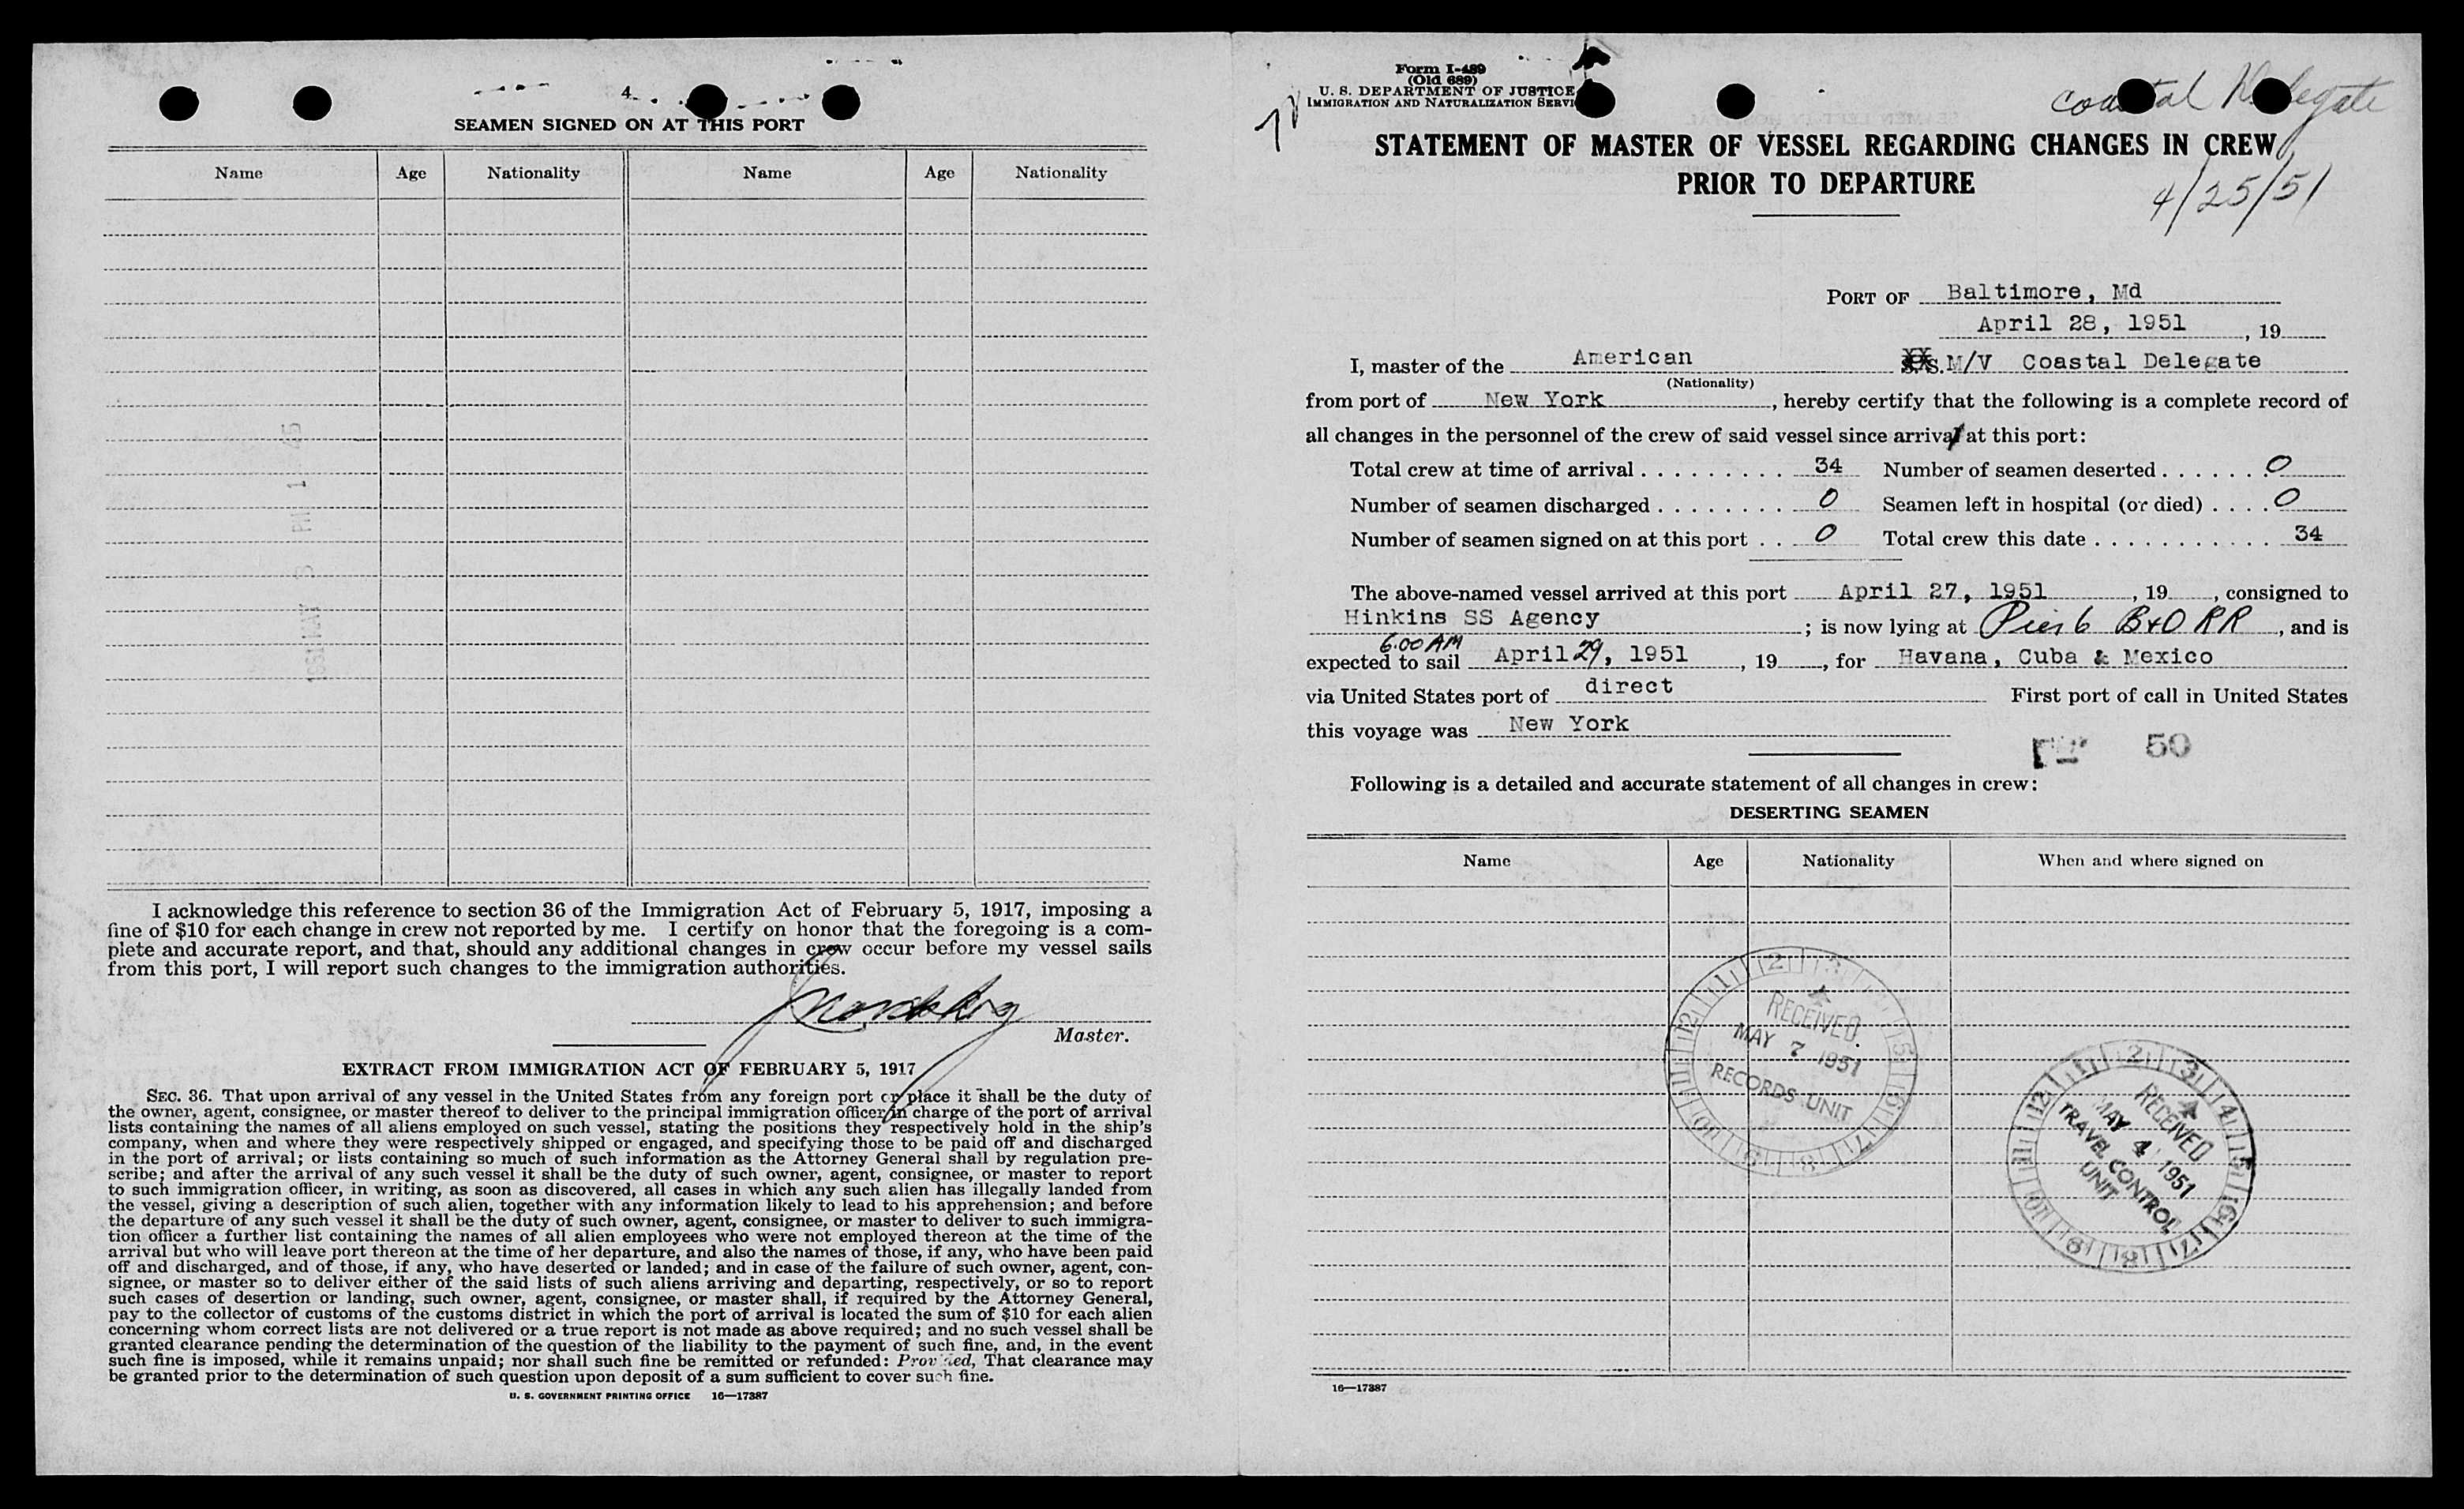 4
SEAMEN SIGNED ON AT THIS PORT
Name Age Nationality Name Age Nationality
1951 MAY 3 PM 1 45
I acknowledge this reference to section 36 of the Immigration Act of February 5, 1917, imposing a
fine of $10 for each change in crew not reported by me. I certify on honor that the foregoing is a com-
plete and accurate report, and that, should any additional changes in crew occur before my vessel sails
from this port, I will report such changes to the immigration authorities.
Master.
EXTRACT FROM IMMIGRATION ACT OF FEBRUARY 5, 1917
SEC. 36. That upon arrival of any vessel in the United States from any foreign port or place it shall be the duty of
the owner, agent, consignee, or master thereof to deliver to the principal immigration officer in charge of the port of arrival
lists containing the names of all aliens employed on such vessel, stating the positions they respectively hold in the ship's
company, when and where they were respectively shipped or engaged, and specifying those to be paid off and discharged
in the port of arrival; or lists containing so much of such information as the Attorney General shall by regulation pre-
scribe; and after the arrival of any such vessel it shall be the duty of such owner, agent, consignee, or master to report
to such immigration officer, in writing, as soon as discovered, all cases in which any such alien has illegally landed from
the vessel, giving a description of such alien, together with any information likely to lead to his apprehension; and before
the departure of any such vessel it shall be the duty of such owner, agent, consignee, or master to deliver to such immigra-
tion officer a further list containing the names of all alien employees who were not employed thereon at the time of the
arrival but who will leave port thereon at the time of her departure, and also the names of those, if any, who have been paid
off and discharged, and of those, if any, who have deserted or landed; and in case of the failure of such owner, agent, con-
signee, or master so to deliver either of the said lists of such aliens arriving and departing, respectively, or so to report
such cases of desertion or landing, such owner, agent, consignee, or master shall, if required by the Attorney General,
pay to the collector of customs of the customs district in which the port of arrival is located the sum of $10 for each alien
concerning whom correct lists are not delivered or a true report is not made as above required; and no such vessel shall be
granted clearance pending the determination of the question of the liability to the payment of such fine, and, in the event
such fine is imposed, while it remains unpaid; nor shall such fine be remitted or refunded: Provided, That clearance may
be granted prior to the determination of such question upon deposit of a sum sufficient to cover such fine.
U. S. GOVERNMENT PRINTING OFFICE 16—17387
Form I-489
(Old 689)
U. S. DEPARTMENT OF JUSTICE
IMMIGRATION AND NATURALIZATION SERVI
Coastal Delegate
STATEMENT OF MASTER OF VESSEL REGARDING CHANGES IN CREW
PRIOR TO DEPARTURE
4/25/51
PORT OF Baltimore, Md
April 28, 1951, 19
I, master of the American S.S. M/V Coastal Delegate
(Nationality)
from port of New York, hereby certify that the following is a complete record of
all changes in the personnel of the crew of said vessel since arrival at this port:
Total crew at time of arrival . . . . . . . . . 34 Number of seamen deserted . . . . . . . 0
Number of seamen discharged . . . . . . . . 0 Seamen left in hospital (or died) . . . . 0
Number of seamen signed on at this port . . . 0 Total crew this date . . . . . . . . . . . 34
The above-named vessel arrived at this port April 27, 1951, 19, consigned to
Hinkins SS Agency; is now lying at Pier 6 B&O RR, and is
6:00 AM
expected to sail April 29, 1951, 19, for Havana, Cuba & Mexico
via United States port of direct First port of call in United States
this voyage was New York
50
Following is a detailed and accurate statement of all changes in crew:
DESERTING SEAMEN
Name Age Nationality When and where signed on
RECEIVED
MAY 7 1951
RECORDS UNIT
RECEIVED
MAY 4 1951
TRAVEL CONTROL
UNIT
16—17387